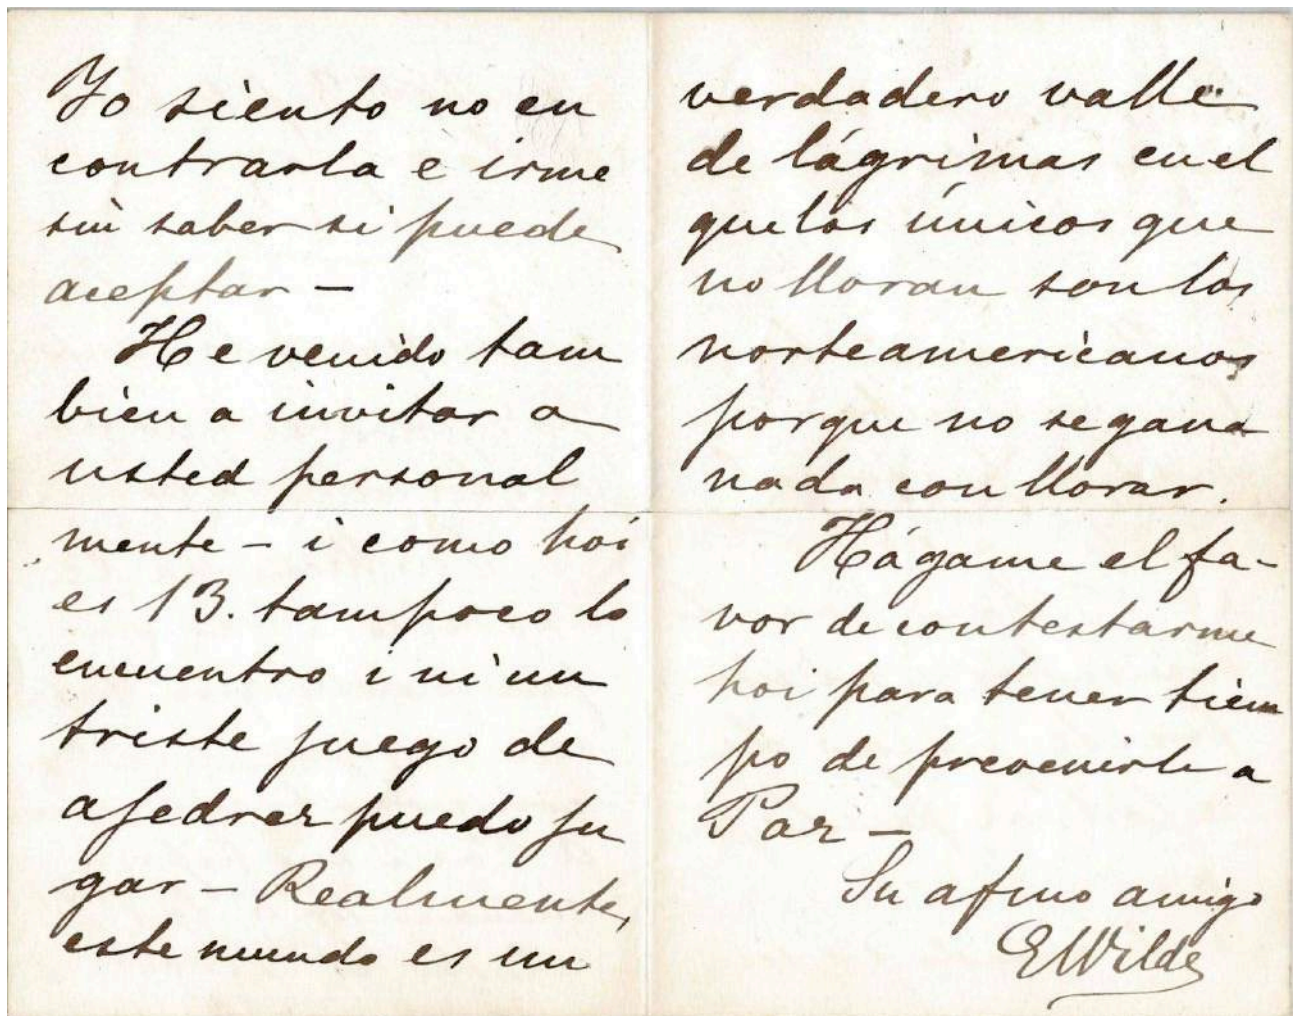 Yo siento no en
contrarla e irme
sin saber si puede
aceptar –
He venido tam
bien a invitar a
usted personal
mente – i como hoi
es 13. tampoco lo
encuentro i ni un
triste juego de
ajedrez puedo ju
gar – Realmente,
este mundo es un
verdadero valle
de lágrimas en el
que los únicos que
no lloran son los
norteamericanos
porque no se gana
nada con llorar.
Hágame el fa-
vor de contestarme
hoi para tener tiem
po de prevenirle a
Paz –
Su afmo amigo
EWilde